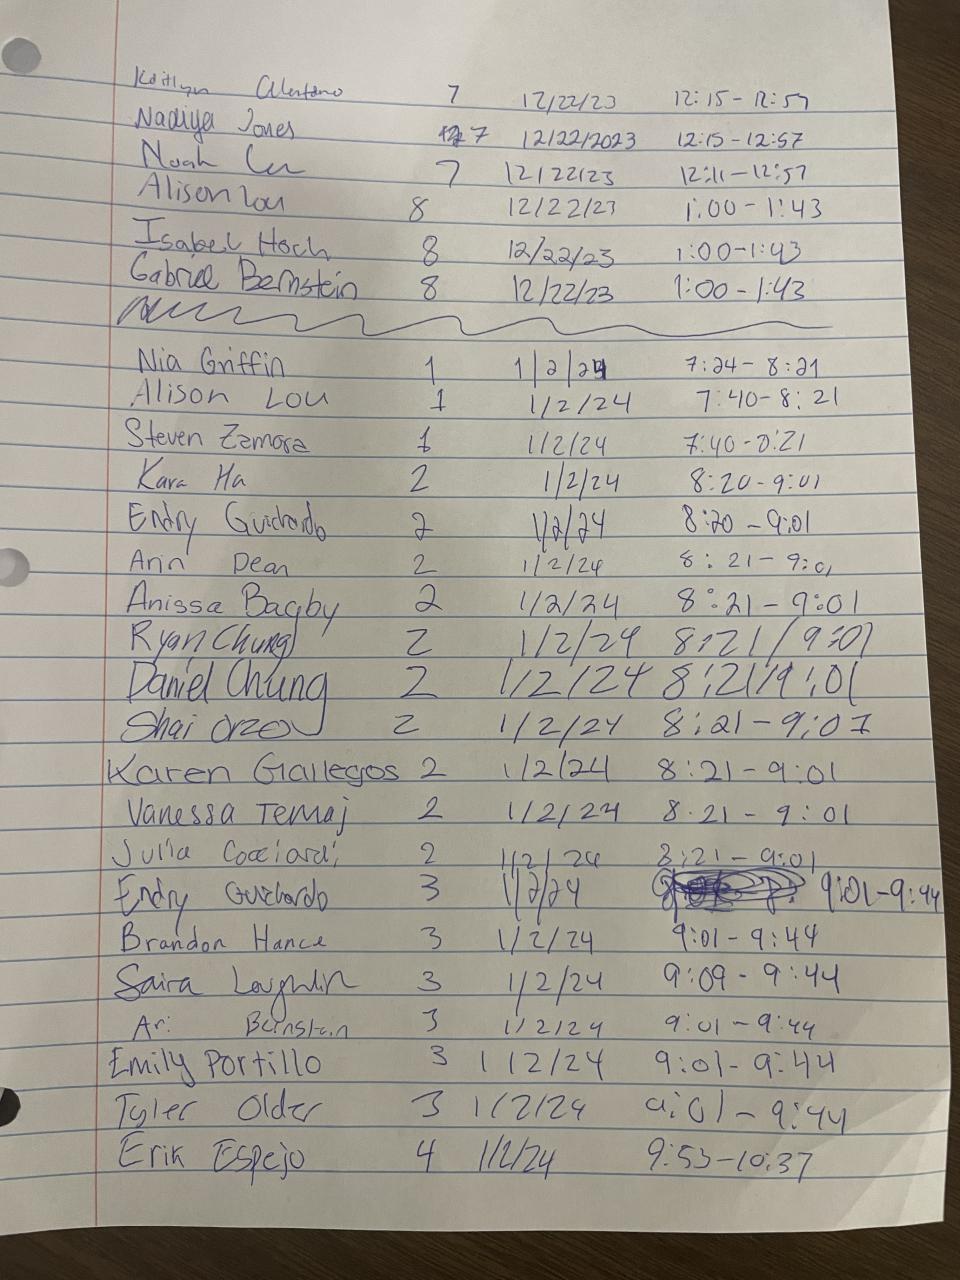 Kaitlyn 7 12/22/23 12:15 - 12:57
Nadiya Jones 7 12/22/2023 12:15 - 12:57
Noah 7 12/22/23 12:11 - 12:57
Alison Lou 8 12/22/23 1:00 - 1:43
Isabel Hoch 8 12/22/23 1:00 - 1:43
Gabriel Bernstein 8 12/22/23 1:00 - 1:43
Nia Griffin 1 1/2/24 7:24 - 8:21
Alison Lou 1 1/2/24 7:40 - 8:21
Steven Zamora 1 1/2/24 7:40 - 8:21
Kara Ha 2 1/2/24 8:20 - 9:01
Endry Guichardo 2 1/2/24 8:20 - 9:01
Arin Dean 2 1/2/24 8:21 - 9:01
Anissa Bagby 2 1/2/24 8:21 - 9:01
Ryan Chung 2 1/2/24 8:21 / 9:01
Daniel Chung 2 1/2/24 8:21 / 9:01
Shai Orzov 2 1/2/24 8:21 - 9:01
Karen Gallegos 2 1/2/24 8:21 - 9:01
Vanessa Temaj 2 1/2/24 8:21 - 9:01
Julia Cocciardi 2 1/2/24 8:21 - 9:01
Endry Guichardo 3 1/2/24 9:01 - 9:44
Brandon Hance 3 1/2/24 9:01 - 9:44
Saira Loughlin 3 1/2/24 9:09 - 9:44
Ari Bernstein 3 1/2/24 9:01 - 9:44
Emily Portillo 3 1/2/24 9:01 - 9:44
Tyler Older 3 1/2/24 9:01 - 9:44
Erik Espejo 4 1/2/24 9:53 - 10:37